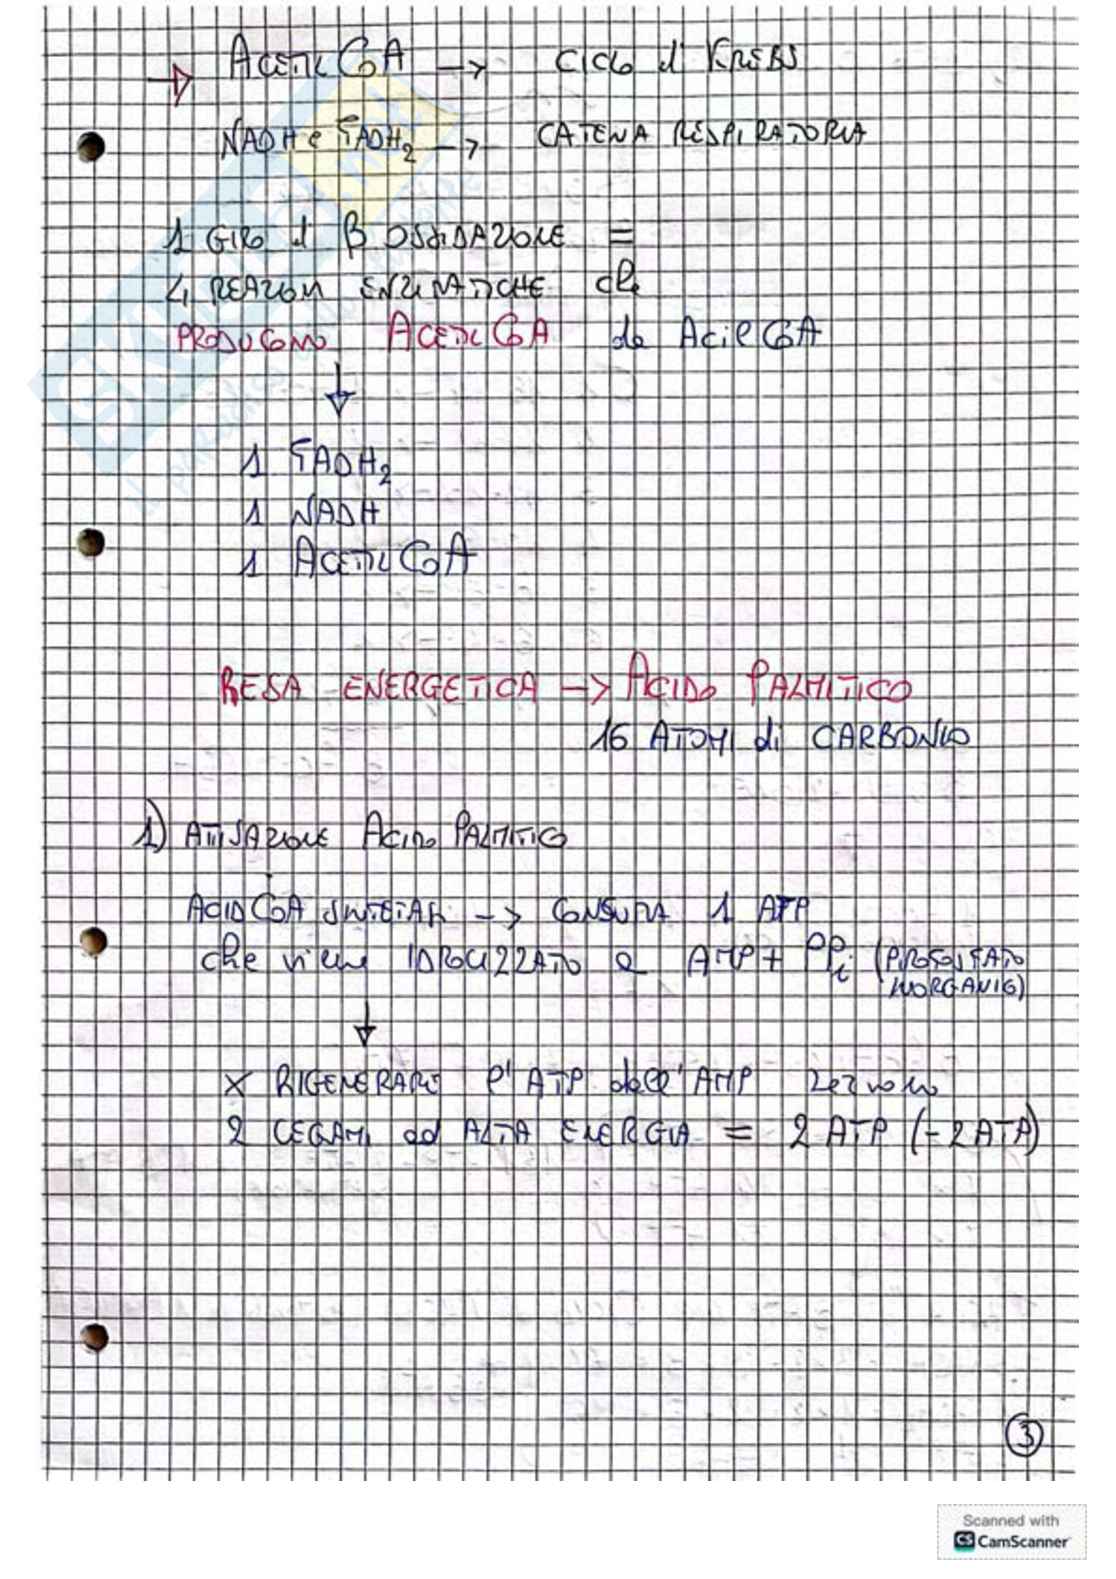 → ACETIL CoA → CICLO di KREBS
NADH e FADH2 → CATENA RESPIRATORIA
1 GIRO di β OSSIDAZIONE =
4 REAZIONI ENZIMATICHE che
PRODUCONO ACETIL CoA da Acil CoA
↓
1 FADH2
1 NADH
1 ACETIL CoA
RESA ENERGETICA → ACIDO PALMITICO
16 ATOMI di CARBONIO
1) ATTIVAZIONE ACIDO PALMITICO
ACIL CoA SINTETASI → CONSUMA 1 ATP
che viene IDROLIZZATO a AMP + PPi (PIROFOSFATO
INORGANICO)
↓
x RIGENERARE l'ATP dall'AMP servono
2 LEGAMI ad ALTA ENERGIA = 2 ATP (-2ATP)
3
Scanned with
CS CamScanner